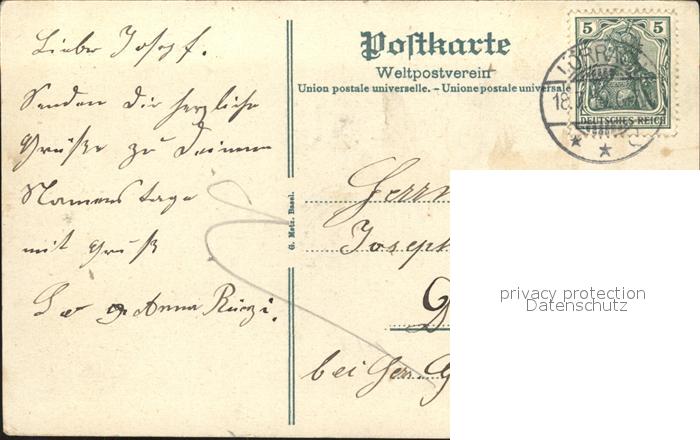 Lieber Josef.
Senden Dir herzliche
Grüße zu Deinem
Namenstage
mit Gruß
Anna
Postkarte
Weltpostverein
Union postale universelle. – Unione postale universale
5 5
DEUTSCHES REICH
18.
G. Metz, Basel.
Herrn
Joseph
bei Herr. G
privacy protection
Datenschutz